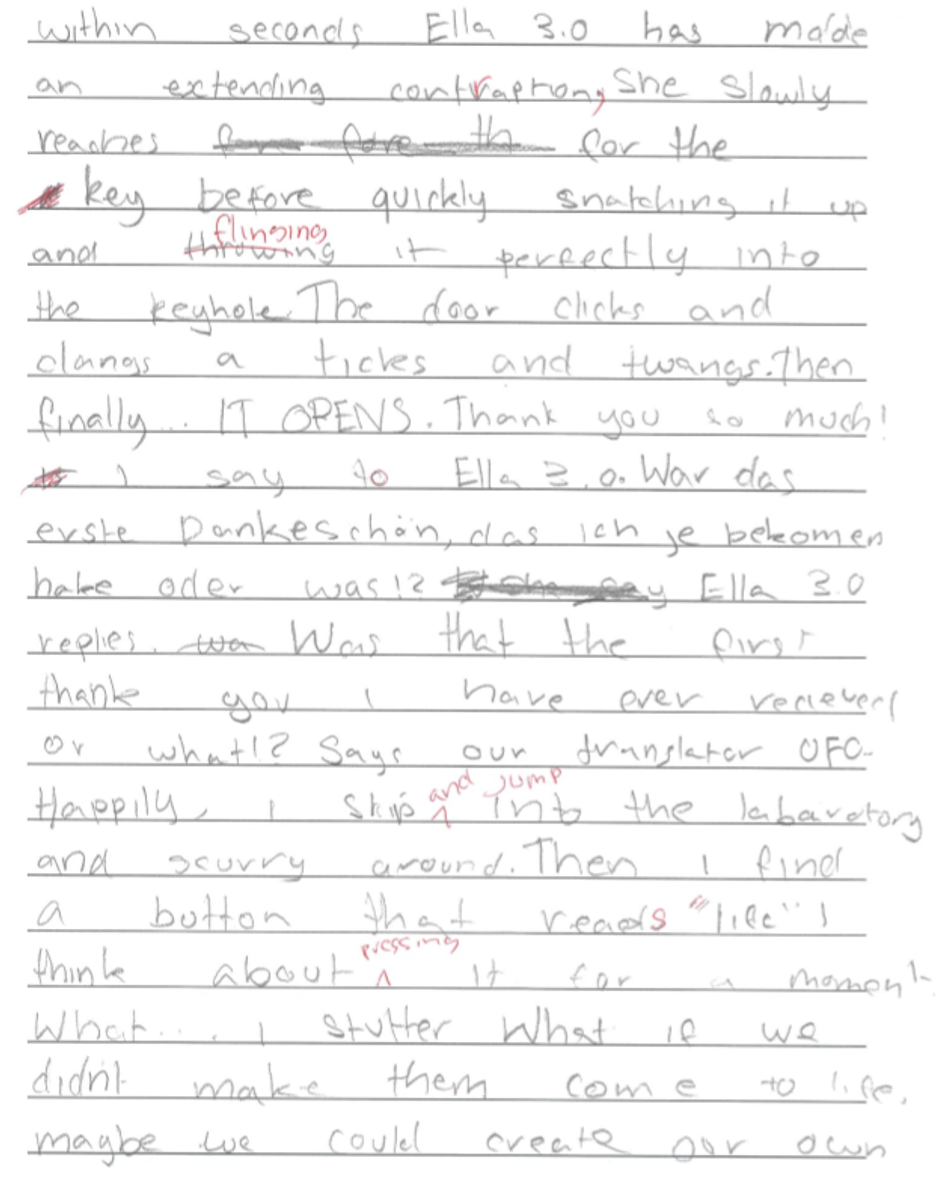 within seconds Ella 3.0 has made
an extending contraption, She slowly
reaches for the
key before quickly snatching it up
and flinging it perfectly into
the keyhole. The door clicks and
clangs a tickes and twangs. Then
finally... IT OPENS. Thank you so much!
I say to Ella 3.0. War das
erste Dankeschön, das ich je bekomen
habe oder was!? Ella 3.0
replies. Was that the first
thank you I have ever recieved
or what!? Says our translator UFO.
Happily, I skip and jump into the labaratory
and scurry around. Then I find
a button that reads "life" I
think about pressing it for a moment.
What... I stutter What if we
didn't make them come to life,
maybe we could create our own